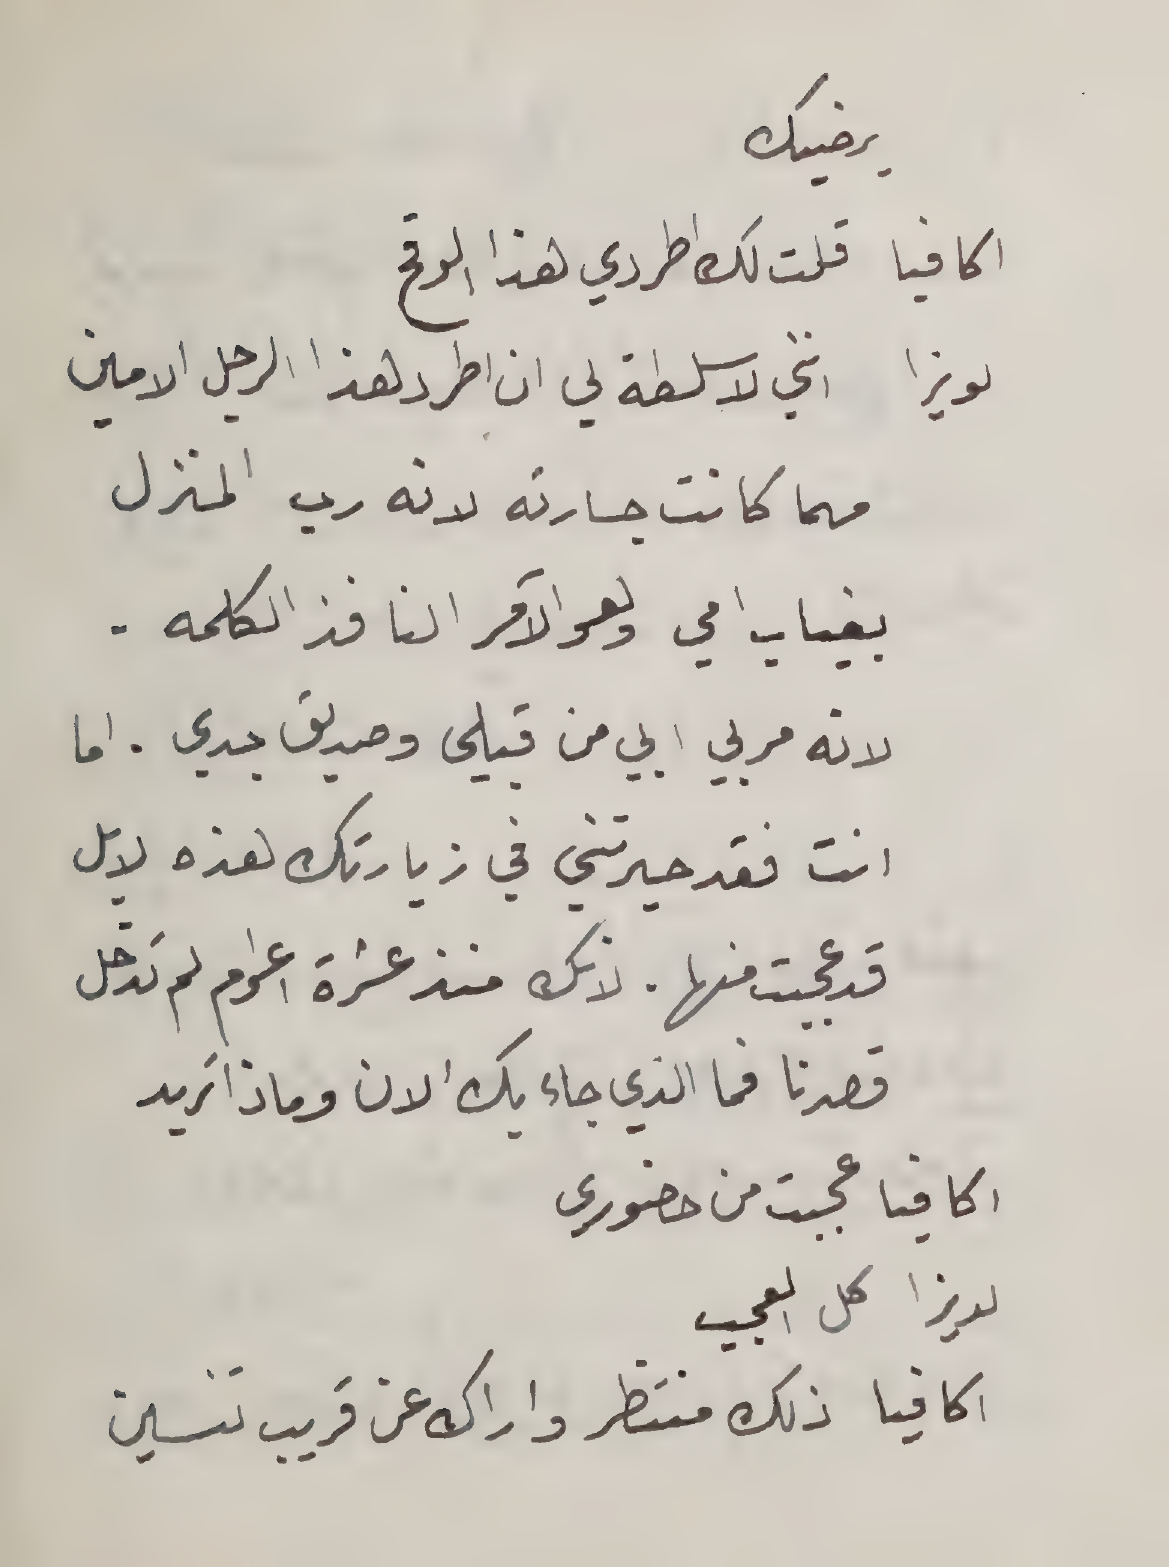 يرضيك
اكافيا قلت لك اطردي هذا الوقح
لويزا انني لا سلطة لي ان اطرد هذا الرجل الامين
مهما كانت جسارته لانه رب المنزل
بغياب امي وهو الآمر النافذ الكلمه .
لانه مربي ابي من قبلي وصديق جدي . اما
انت فقد حيرتني في زيارتك هذه لا بل
قد عجبت منها . لانك منذ عشرة اعوام لم تدخل
قصرنا فما الذي جاء بك الان وماذا تريد
اكافيا عجبت من حضوري
لويزا كل العجب
اكافيا ذلك منتظر واراك عن قريب تنسين